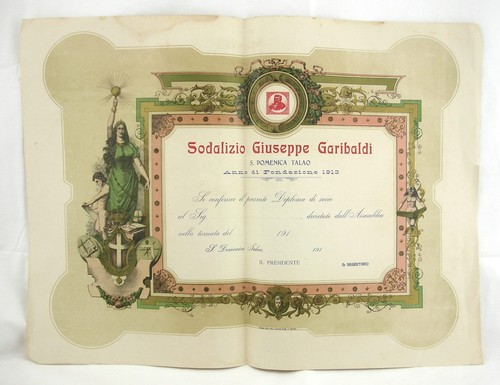 Sodalizio Giuseppe Garibaldi
S. DOMENICA TALAO
Anno di Fondazione 1913
Si conferisce il presente Diploma di socio
al Sig. decretato dall'Assemblea
nella tornata del 191
S. Domenica Talao, 191
IL PRESIDENTE IL SEGRETARIO